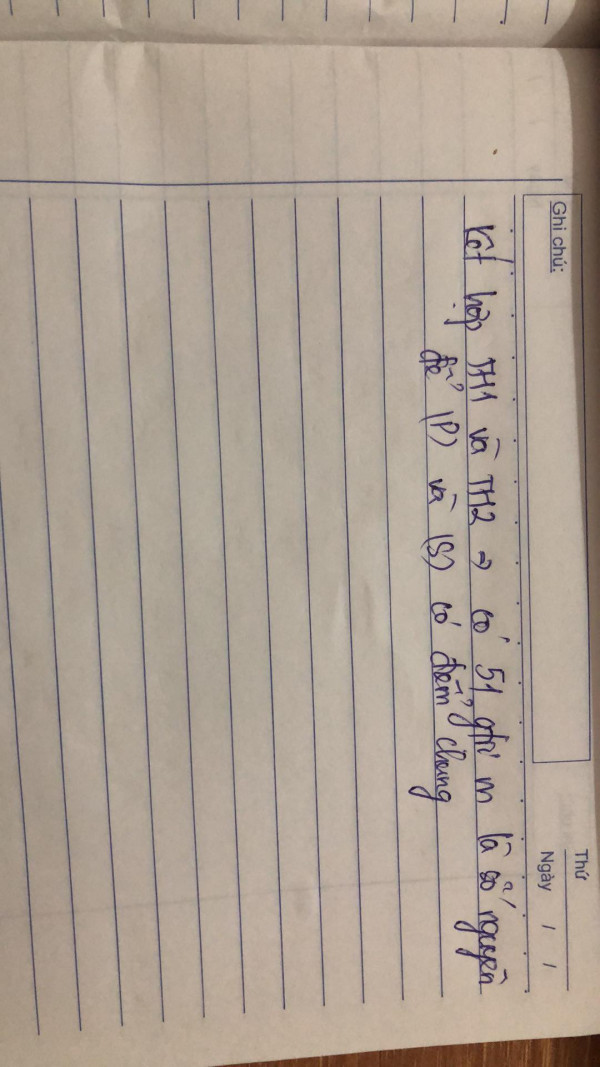 Ghi chú:
Thứ
Ngày / /
Kết hợp TH1 và TH2 => có 51 gtrị m là số nguyên
để (P) và (S) có điểm chung